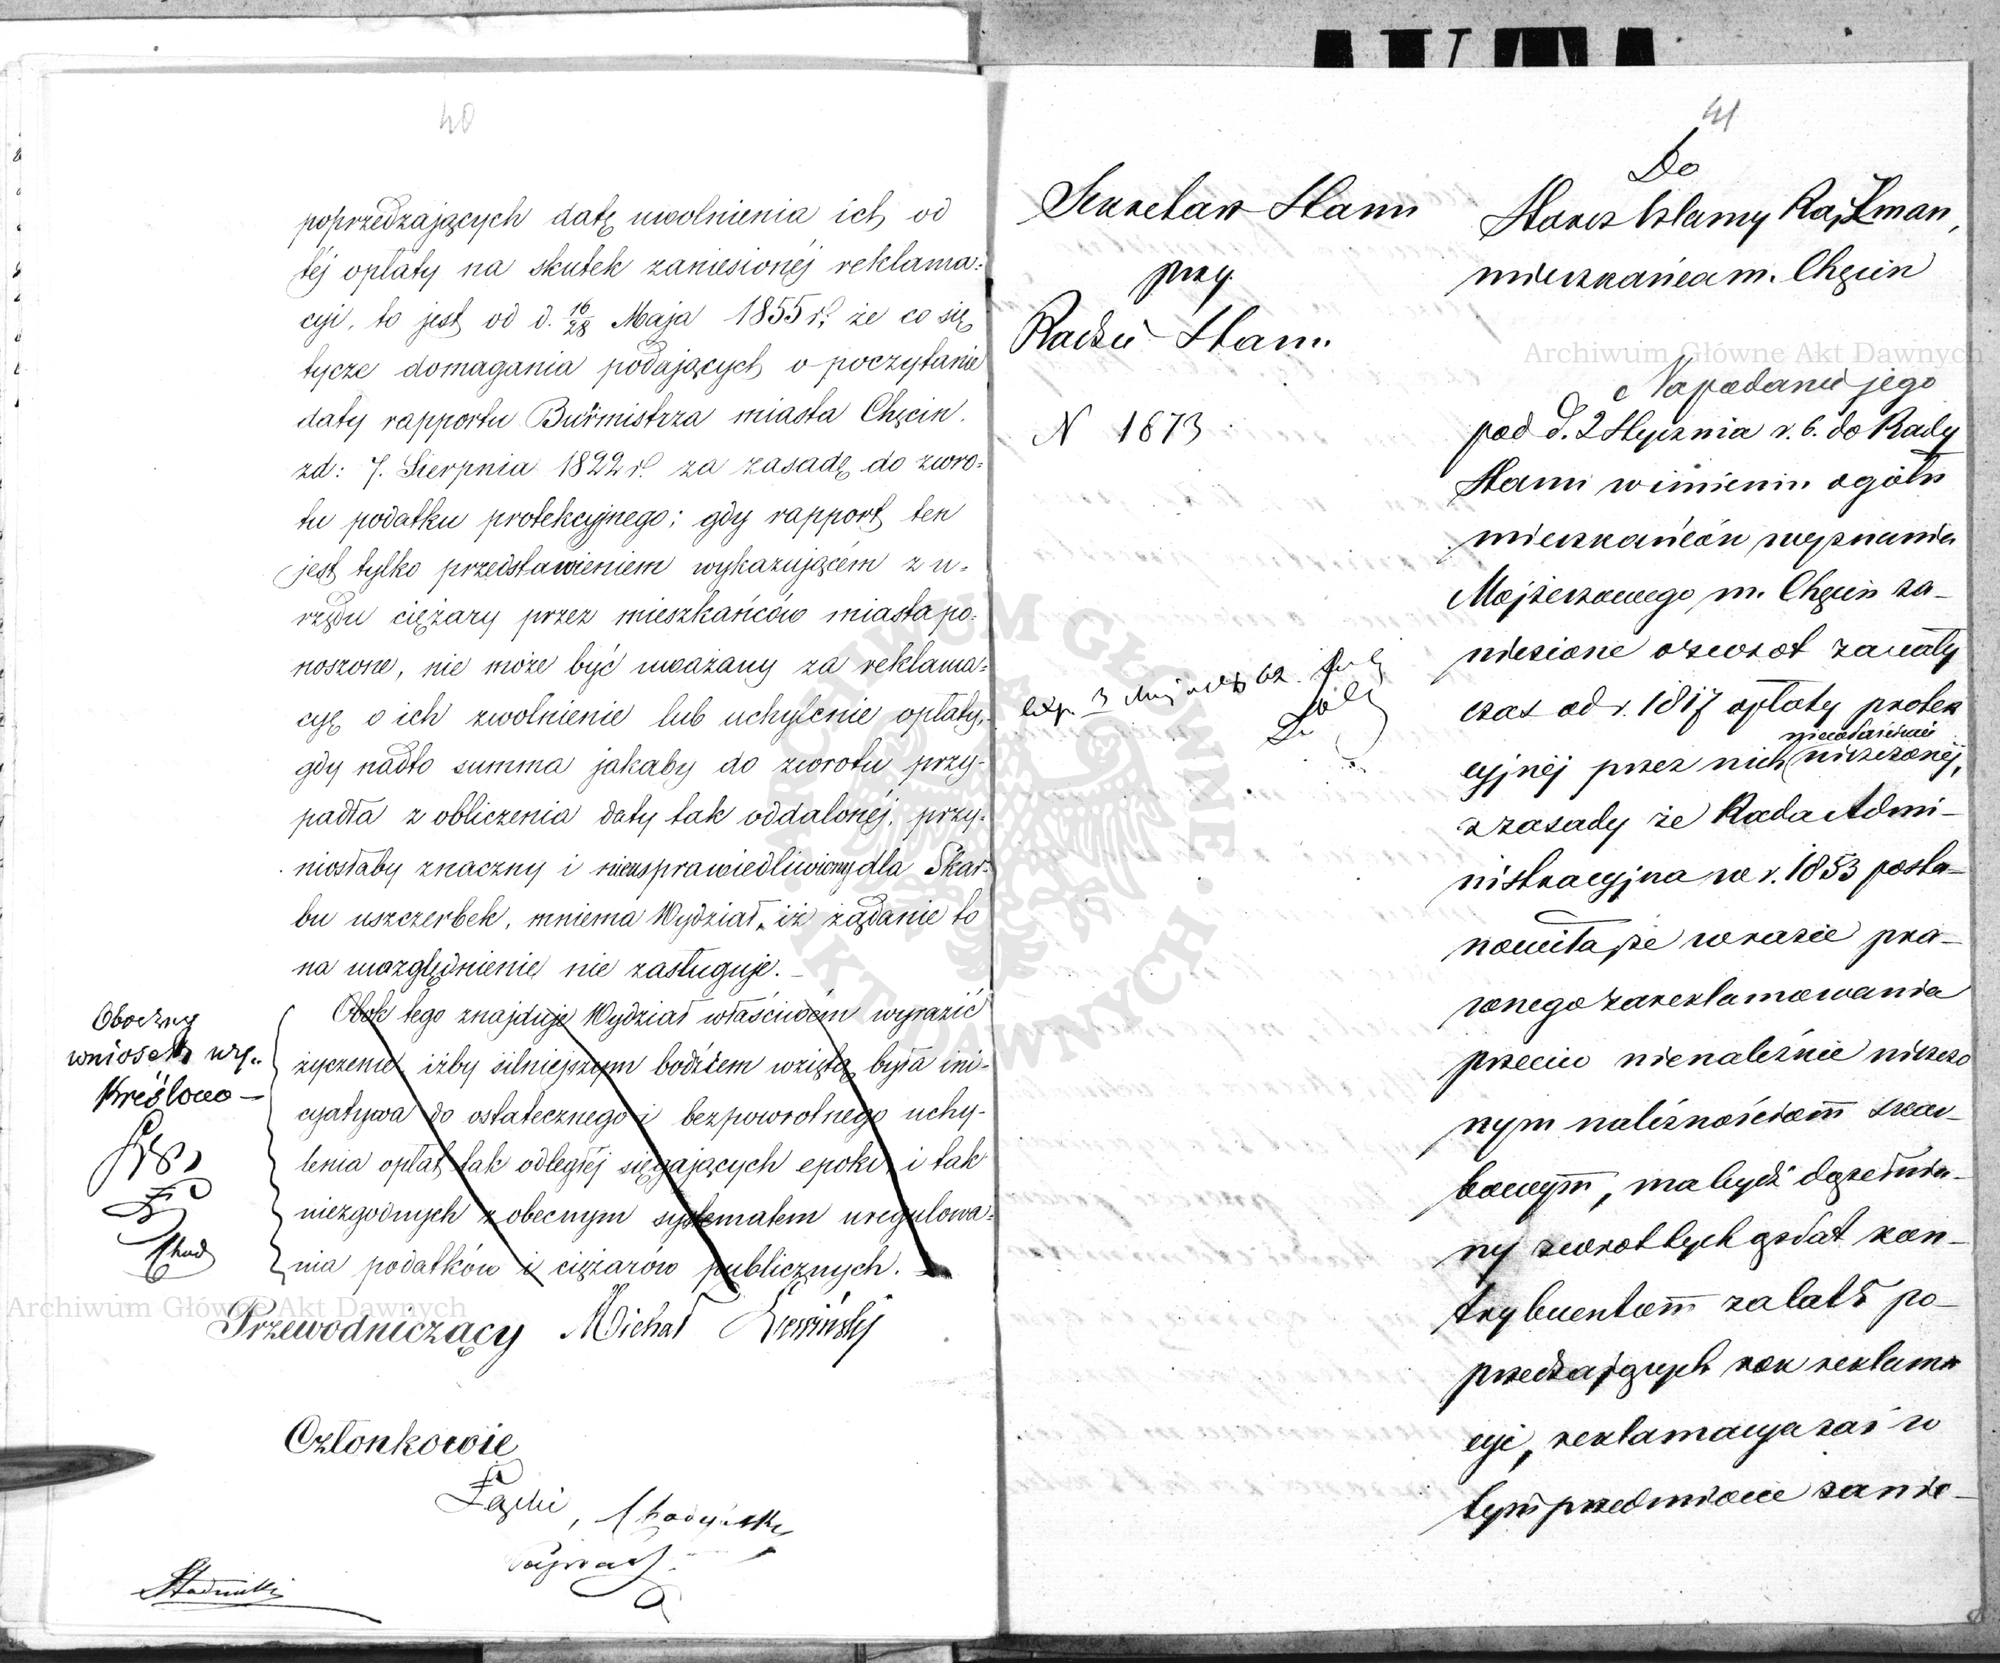 40
poprzedzających datę uwolnienia ich od
téj opłaty na skutek zaniesionéj reklama:
cyi, to jest od d. 16/28 Maja 1855 r., że co się
tycze domagania podających o poczytanie
daty rapportu Burmistrza miasta Chęcin.
zd: 7. Sierpnia 1822 r. za zasadę do zwro:
tu podatku protekcyjnego; gdy rapport ten
jest tylko przedstawieniem wykazującém z u:
rzędu ciężary przez mieszkańców miasta po:
noszone, nie może być uważany za reklama:
cyę o ich zwolnienie lub uchylenie opłaty,
gdy nadto summa jakaby do zwrotu przy-
padła z obliczenia daty tak oddalonéj, przy-
niosłaby znaczny i nieusprawiedliwiony dla Skar:
bu uszczerbek, mniema Wydział, iż żądanie to
na uwzględnienie nie zasługuje. –
Obok tego znajduje Wydział właściwém wyrazić
życzenie, iżby silniejszym bodźcem wziętą była ini-
cyatywa do ostatecznego i bezpowrotnego uchy-
lenia opłat tak odległéj sięgających epoki, i tak
niezgodnych z obecnym systematem uregulowa:
nia podatków i ciężarów publicznych. –
Oboczny
wniosek wy-
kreślono –
Przewodniczący Michał
Członkowie
Łęski,
41
Sekretarz Stanu
przy
Radzie Stanu
N 1673
Do
Starozakonny Rajzman,
mieszkańca m. Chęcin
Na podanie jego
pod d. 2 Stycznia r. b. do Rady
Stanu w imieniu ogółu
mieszkańców wyznania
Mojżeszowego m. Chęcin za-
niesione o zwrot za cały
czas od r. 1817 opłaty protek
cyjnéj przez nich
niewłaściwie
niszczonéj,
z zasady że Rada Admi-
nistracyjna w r. 1853 posta-
nowiła, że w razie pra-
wnego zareklamowania
przeciw nienależnie niszczo
nym należnościom skar-
bowym, ma bydź dopełnio-
ny zwrot tych opłat kon-
trybuentom za lat 5 po-
przedzających rok reklama
cyi, reklamacya zaś w
tym przedmiocie zanie-
Archiwum Główne Akt Dawnych
Archiwum Główne Akt Dawnych
ARCHIWUM GŁÓWNE · AKT DAWNYCH ·